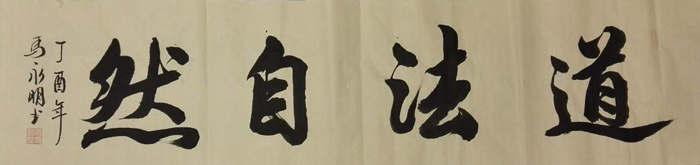 道法自然
丁酉年
馬永明书